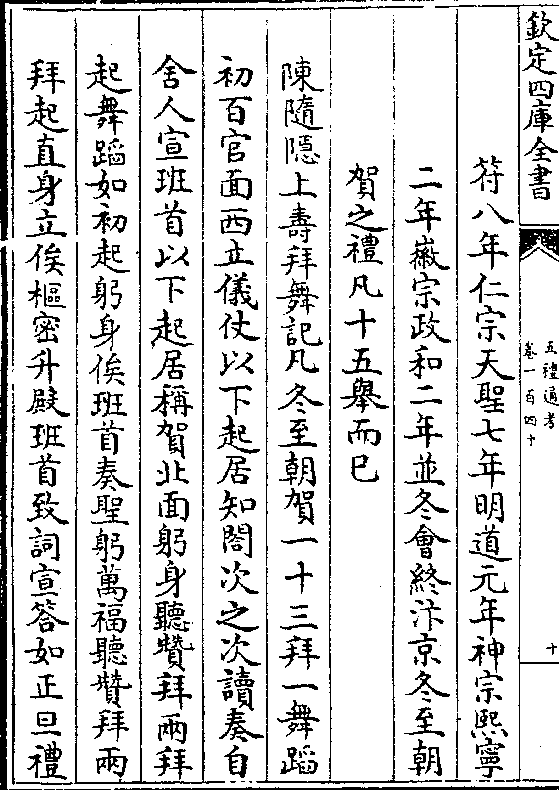 欽定四庫全書
五禮通考
卷一百四十
十
符八年仁宗天聖七年明道元年神宗熙寧
二年徽宗政和二年並冬會終汴京冬至朝
賀之禮凡十五舉而已
陳隨隱上壽拜舞記凡冬至朝賀一十三拜一舞蹈
初百官面西立儀仗以下起居知閤次之次讀奏自
舍人宣班首以下起居稱賀北面躬身聽贊拜兩拜
起舞蹈如初起躬身俟班首奏聖躬萬福聽贊拜兩
拜起直身立俟樞密升殿班首致詞宣答如正旦禮